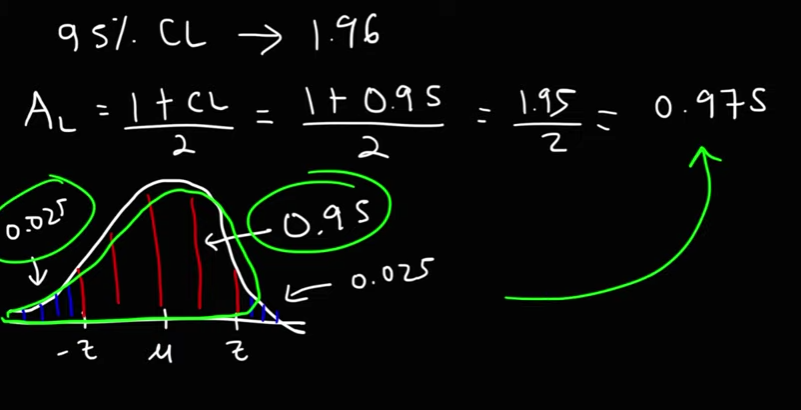 95% CL → 1.96
A_L = (1 + CL)/2 = (1 + 0.95)/2 = 1.95/2 = 0.975
0.025
0.95
0.025
-z μ z